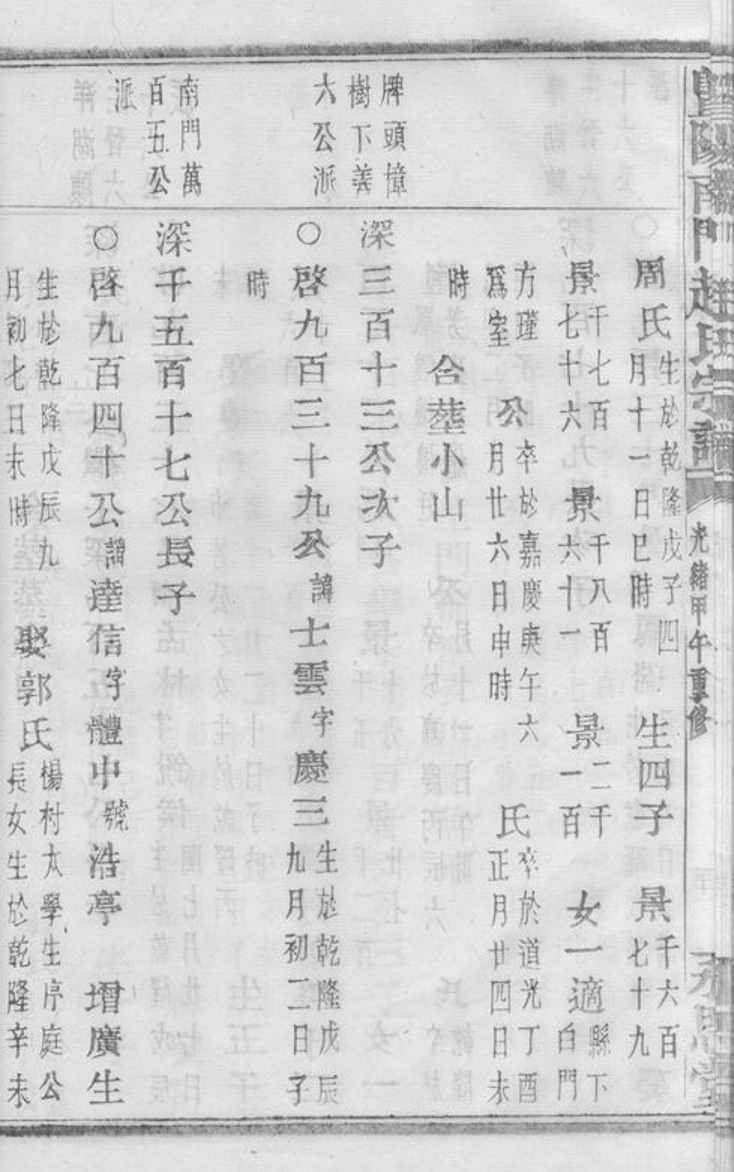 暨陽南門趙氏宗譜
光緒甲午重修
周氏生於乾隆戊子四月十一日巳時 生四子 景千六百七十九
景千七百七十六 景千八百六十一 景二千一百 女一適縣下白門
方瑾爲室 公卒於嘉慶庚午六月廿六日申時 氏卒於道光丁酉正月廿四日未
時 合葬小山
牌頭樟樹下義六公派
深三百十三公次子
○啓九百三十九公諱士雲字慶三生於乾隆戊辰九月初二日子
時
南門萬百五公派
深千五百十七公長子
○啓九百四十公諱達信字體中號浩亭 增廣生
生於乾隆戊辰九月初七日未時 娶郭氏楊村太學生序庭公長女生於乾隆辛未